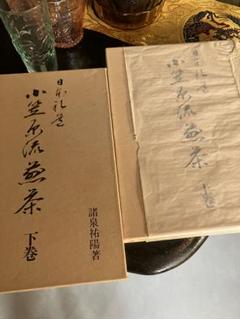 日本礼道
小笠原流煎茶
下巻
諸泉祐陽著
日本礼道
小笠原流煎茶
上巻